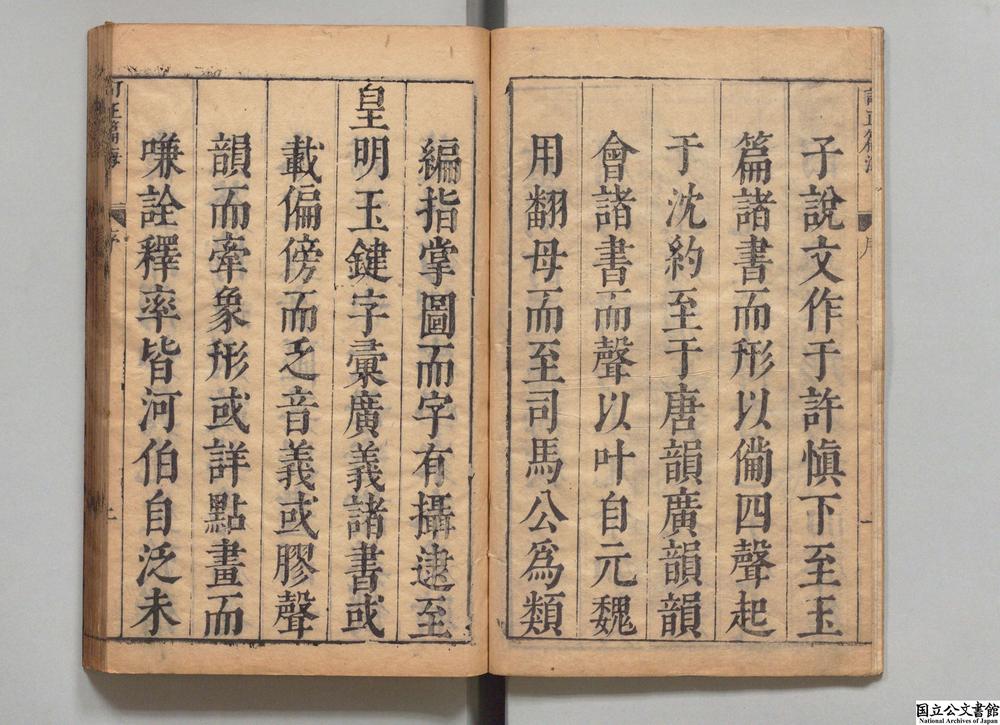 子說文作于許愼下至玉
篇諸書而形以俻四聲起
于沈約至于唐韻廣韻韻
會諸書而聲以叶自元魏
用翻母而至司馬公爲類
編指掌圖而字有攝逮至
皇明玉鍵字彙廣義諸書或
載偏傍而乏音義或膠聲
韻而牽象形或詳點畫而
嗛詮釋率皆河伯自泛未
国立公文書館
National Archives of Japan